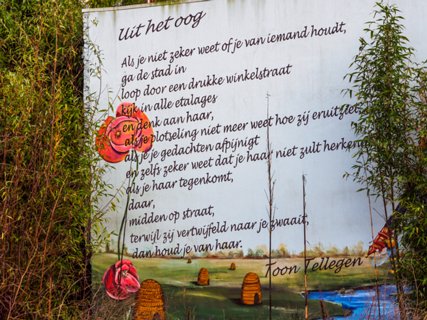 Uit het oog
Als je niet zeker weet of je van iemand houdt,
ga de stad in
loop door een drukke winkelstraat
kijk in alle etalages
en denk aan haar,
als je plotseling niet meer weet hoe zij eruitziet
als je je gedachten afpijnigt
en zelfs zeker weet dat je haar niet zult herkennen
als je haar tegenkomt,
daar,
midden op straat,
terwijl zij vertwijfeld naar je zwaait,
dan houd je van haar.
Toon Tellegen